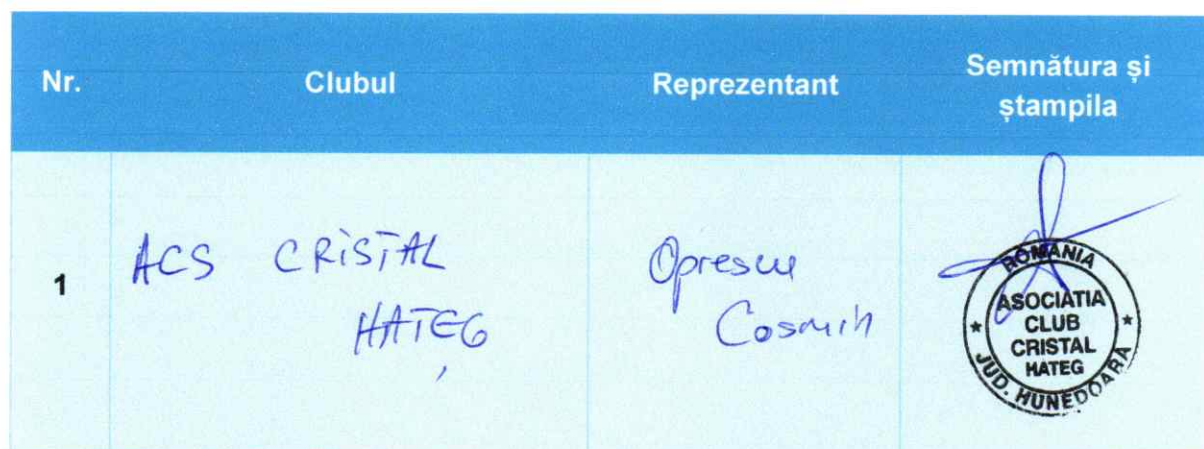 Nr. Clubul Reprezentant Semnătura și
ștampila
1 ACS CRISTAL Oprescu
HAȚEG Cosmin
ROMANIA
ASOCIATIA
CLUB
CRISTAL
HATEG
JUD. HUNEDOARA